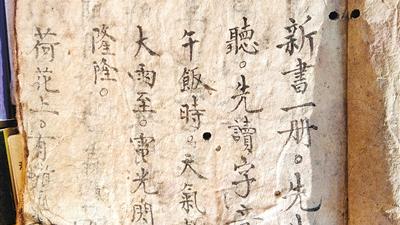 新書一册。先生
聽。先讀字音
午飯時。天氣
大雨至。電光閃
隆隆。
荷花上。有